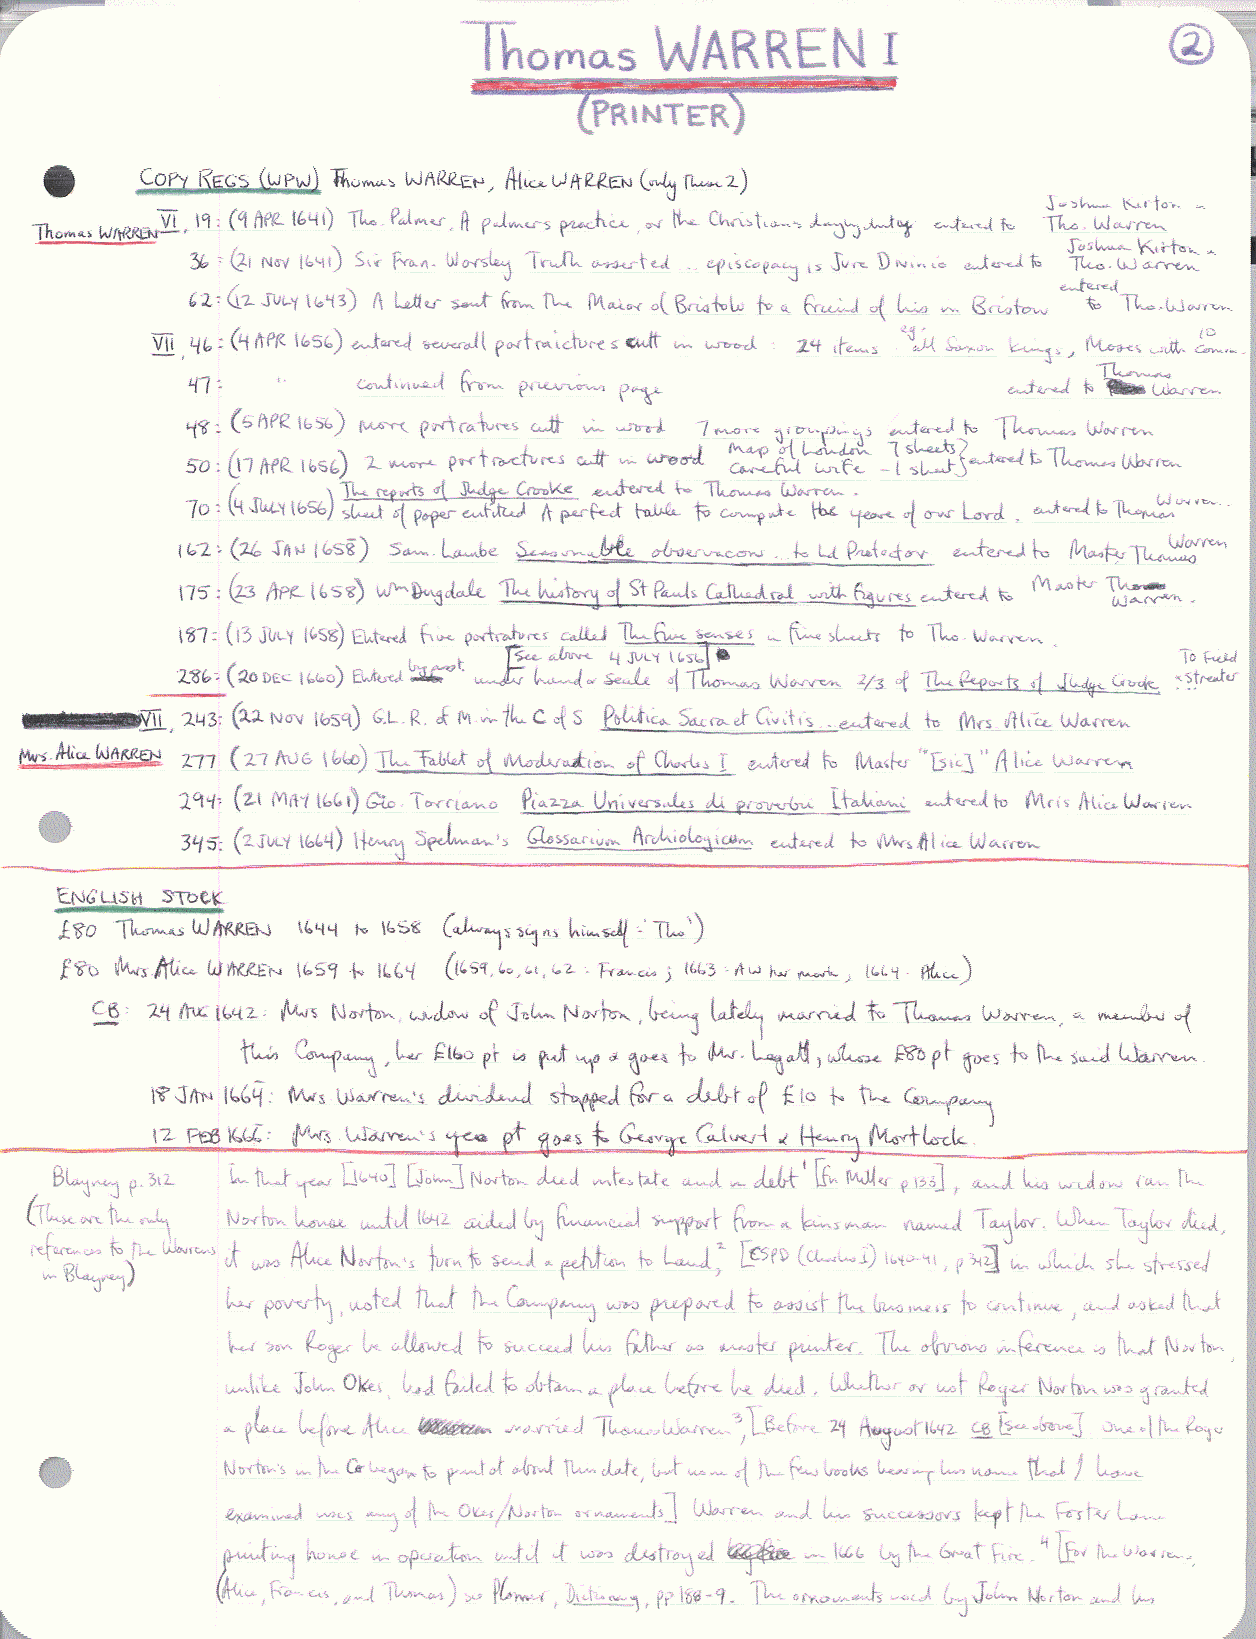 Thomas WARREN I
2
(PRINTER)
COPY REGS (WPW) Thomas WARREN, Alice WARREN (only these 2)
Thomas WARREN VI, 19: (9 APR 1641) Tho. Palmer, A palmers practice, or the Christians dayly duty entered to Joshua Kirton & Tho. Warren
36: (21 NOV 1641) Sir Fran. Worsley Truth asserted ... episcopacy is Jure Divinio entered to Joshua Kirton & Tho. Warren
62: (12 JULY 1643) A letter sent from the Maior of Bristole to a freind of his in Bristow entered to Tho. Warren
VII, 46: (4 APR 1656) entered severall portraictures cutt in wood: 24 items eg. all Saxon kings, Moses with 10 Comm-
47: " continued from previous page entered to Thomas Warren
48: (5 APR 1656) more portratures cutt in wood 7 more groupings entered to Thomas Warren
50: (17 APR 1656) 2 more portractures cutt in wood map of London 7 sheets} careful wife - 1 sheet} entered to Thomas Warren
70: (4 JULY 1656) The reports of Judge Crooke entered to Thomas Warren.
sheet of paper entitled A perfect table to compute the yeare of our Lord, entered to Thomas Warren...
162: (26 JAN 1658) Sam. Lambe Seasonable observacons ... to Ld Protector entered to Master Thomas Warren
175: (23 APR 1658) Wm Dugdale The history of St Pauls Cathedral with figures entered to Master Tho Warren.
187: (13 JULY 1658) Entered five portratures called The five senses in five sheets to Tho. Warren.
[See above 4 JULY 1656]
286: (20 DEC 1660) Entered under hand & seale of Thomas Warren 2/3 of The Reports of Judge Crook To Field & Streater
VII, 243: (22 NOV 1659) G.L.R. of M. in the C of S Politica Sacra et Civitis ... entered to Mrs. Alice Warren
Mrs. Alice WARREN 277 (27 AUG 1660) The Tablet of Moderation of Charles I entered to Master "[sic]" Alice Warren
294: (21 MAY 1661) Gio. Torriano Piazza Universales di proverbii Italiani entered to Mris Alice Warren
345: (2 JULY 1664) Henry Spelman's Glossarium Archiologicum entered to Mrs Alice Warren
ENGLISH STOCK
£80 Thomas WARREN 1644 to 1658 (always signs himself 'Tho')
£80 Mrs Alice WARREN 1659 to 1664 (1659, 60, 61, 62: Francis; 1663: AW her mark, 1664: Alice)
CB: 24 AUG 1642: Mrs Norton, widow of John Norton, being lately married to Thomas Warren, a member of
this Company, her £160 pt is put up & goes to Mr. Legatt, whose £80 pt goes to the said Warren.
18 JAN 1664: Mrs. Warren's dividend stopped for a debt of £10 to the Company
12 FEB 1665: Mrs. Warren's pt goes to George Calvert & Henry Mortlock.
Blayney p. 312
(These are the only
references to the Warrens
in Blayney)
In that year [1640] [John] Norton died intestate and in debt¹ [fn Miller p 133], and his widow ran the
Norton house until 1642 aided by financial support from a kinsman named Taylor. When Taylor died,
it was Alice Norton's turn to send a petition to Laud,² [CSPD (Charles I) 1640-41, p 312] in which she stressed
her poverty, noted that the Company was prepared to assist the business to continue, and asked that
her son Roger be allowed to succeed his father as master printer. The obvious inference is that Norton,
unlike John Okes, had failed to obtain a place before he died. Whether or not Roger Norton was granted
a place before Alice married Thomas Warren³, [Before 24 August 1642 CB [see above] One of the Roger
Norton's in the Co began to print at about this date, but none of the few books bearing his name that I have
examined uses any of the Okes/Norton ornaments] Warren and his successors kept the Foster Lane
printing house in operation until it was destroyed in 1666 by the Great Fire.⁴ [For the Warrens,
(Alice, Francis, and Thomas) see Plomer, Dictionary, pp 188-9. The ornaments used by John Norton and his